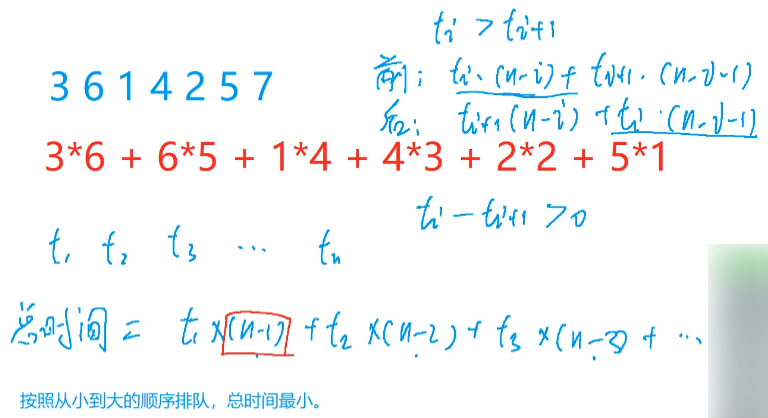 tᵢ > tᵢ₊₁
前: tᵢ·(n-i) + tᵢ₊₁·(n-i-1)
3 6 1 4 2 5 7
后: tᵢ₊₁(n-i) + tᵢ·(n-i-1)
3*6 + 6*5 + 1*4 + 4*3 + 2*2 + 5*1
tᵢ - tᵢ₊₁ > 0
t₁ t₂ t₃ ⋯ tₙ
总时间 = t₁ × (n-1) + t₂ × (n-2) + t₃ × (n-3) + ⋯
按照从小到大的顺序排队，总时间最小。